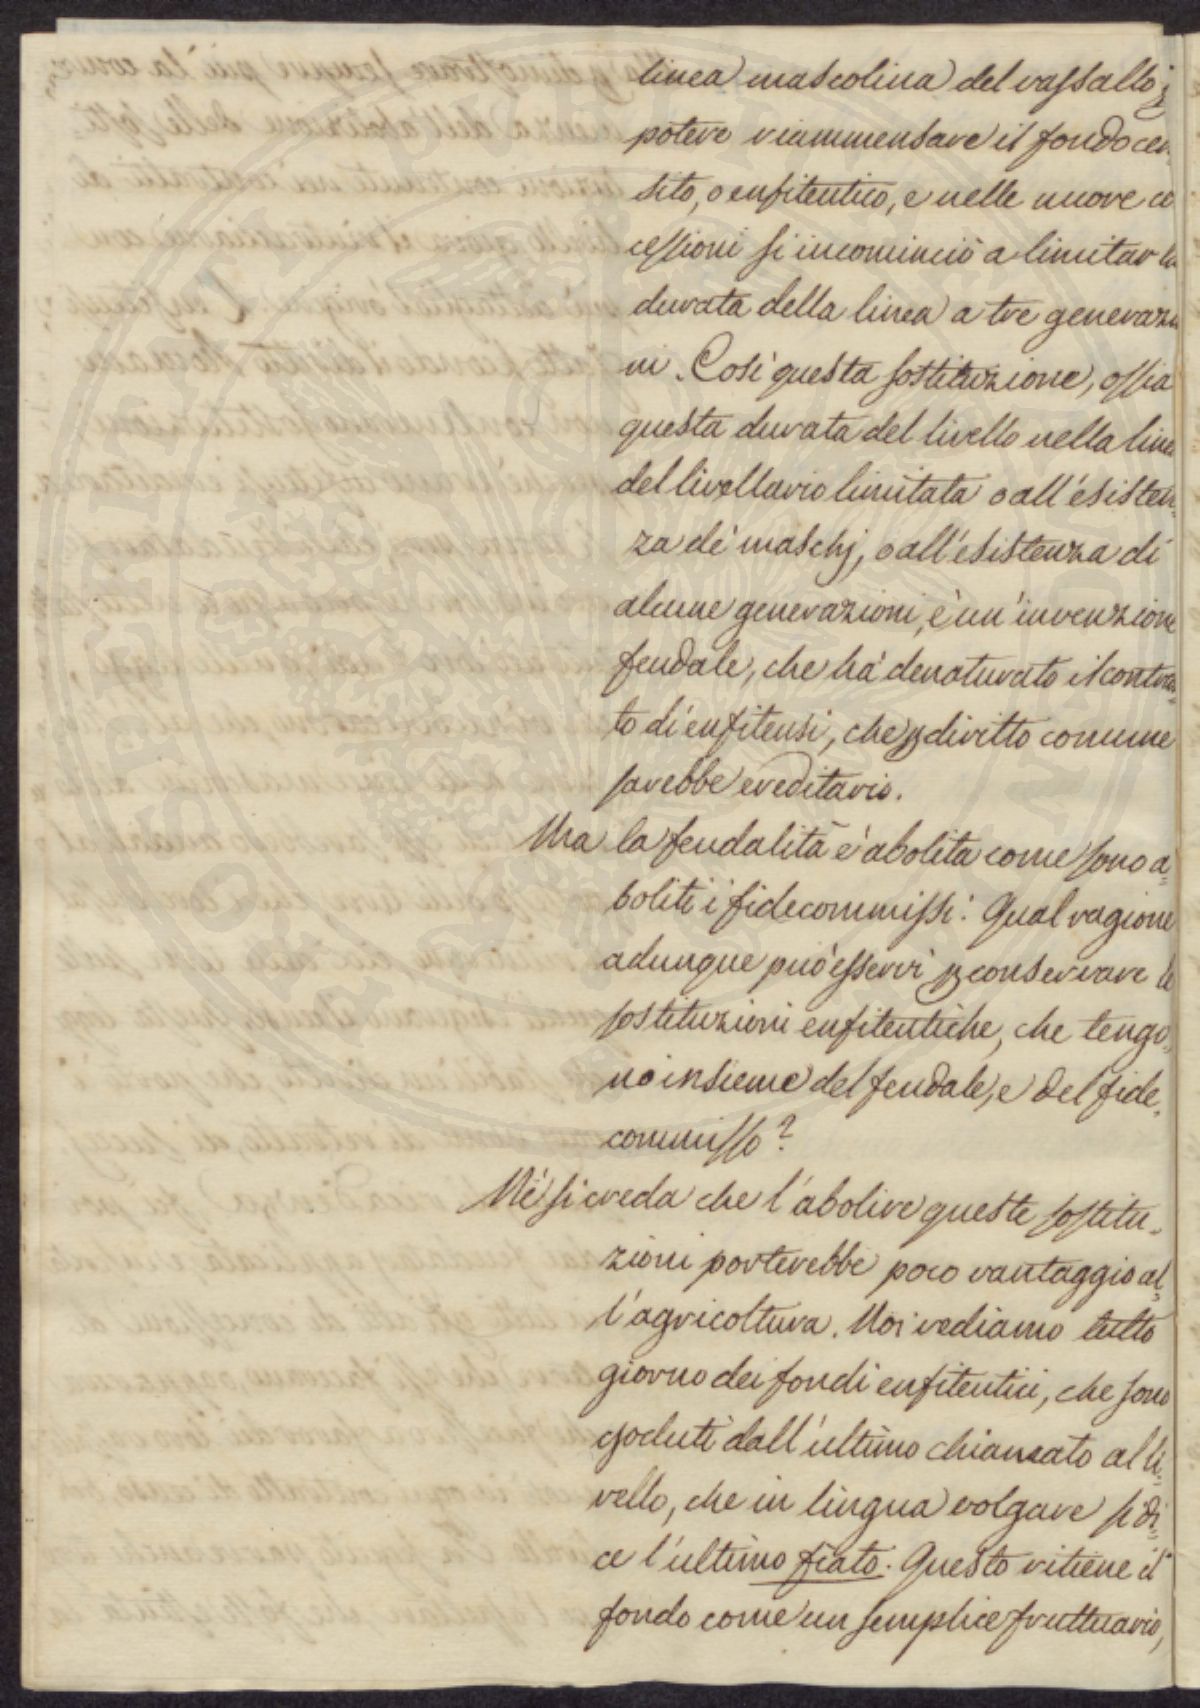 linea mascolina del vassallo;
poteve riammensare il fondo cen,
sito, o enfiteutico, e nelle nuove co
cessioni si incominciò a limitar la
durata della linea a tre generazio
ni. Così questa sostituzione, ossia
questa durata del livello nella linea
del livellario limitata o all'esisten,
za de' maschj, o all'esistenza di
alcune generazioni, è un'invenzione
feudale, che ha denaturato il contrat,
to di enfiteusi, che p diritto comune
sarebbe ereditario.
Ma la feudalità è abolita come sono a=
boliti i fidecommissi: Qual ragione
adunque può esservi p conservare le
sostituzioni enfiteutiche, che tengo,
no insieme del feudale, e del fide,
commisso?
Nè si creda che l'abolire queste sostitu,
zioni porterebbe poco vantaggio al=
l'agricoltura. Noi vediamo tutto
giorno dei fondi enfiteutici, che sono
goduti dall'ultimo chiamato al li,
vello, che in lingua volgare si di=
ce l'ultimo fiato. Questo ritiene il
fondo come un semplice fruttuario,